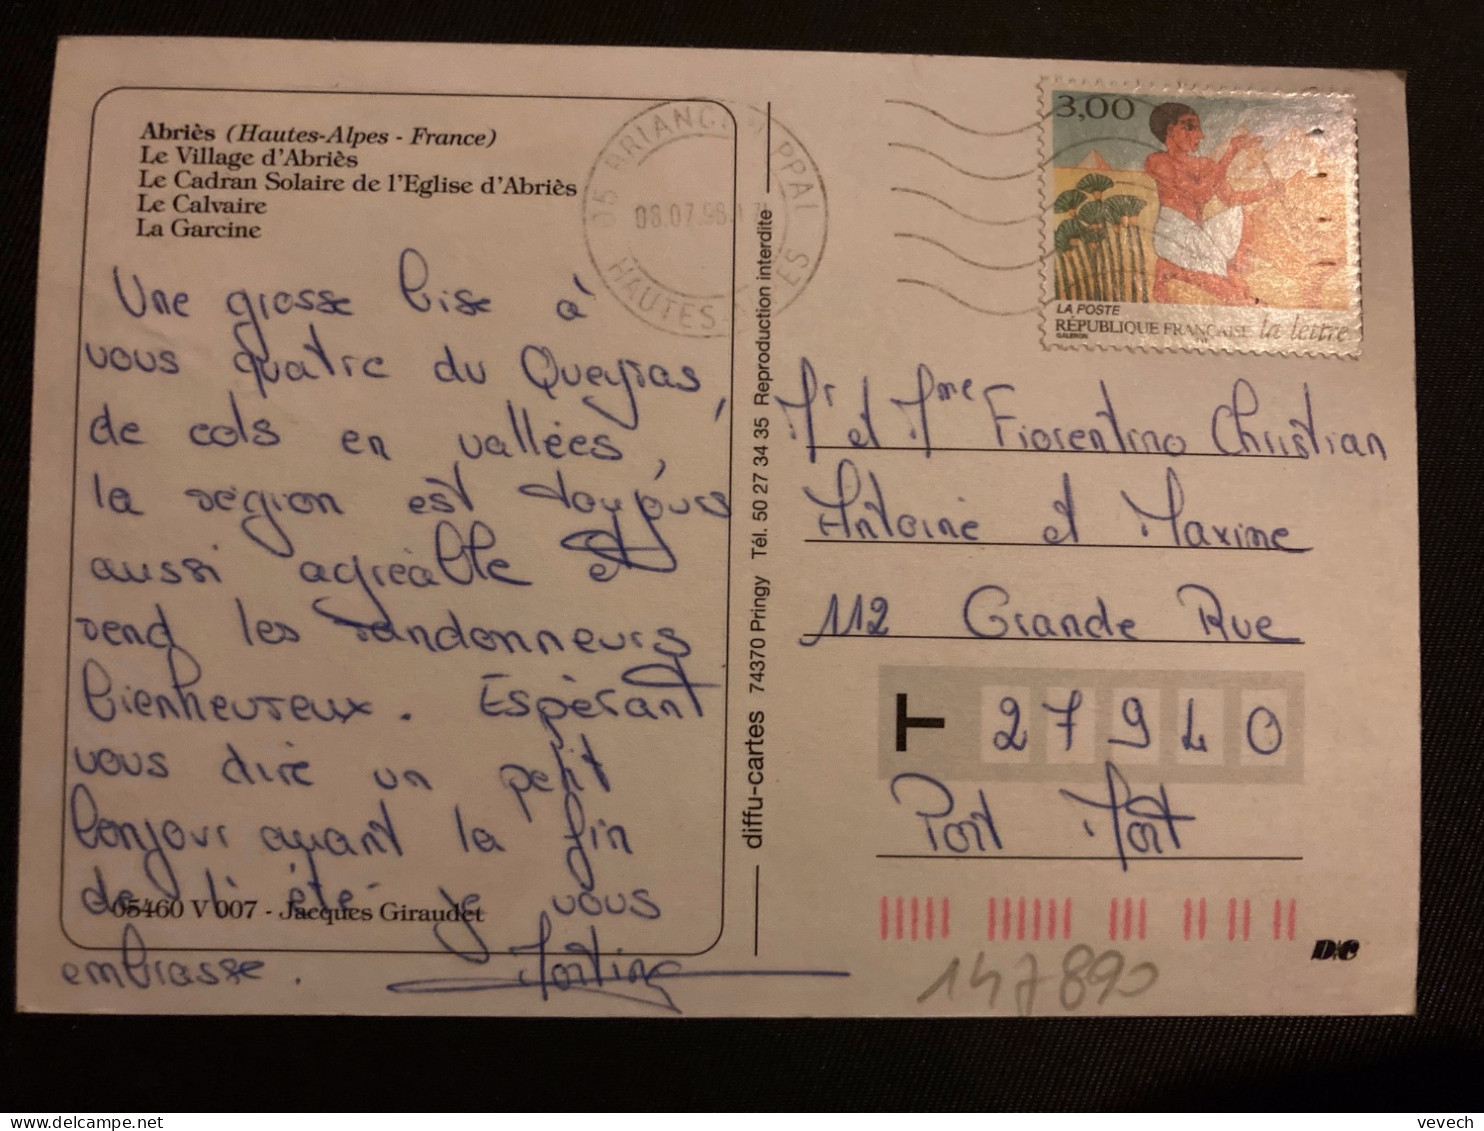 Abriès (Hautes-Alpes - France)
Le Village d'Abriès
Le Cadran Solaire de l'Eglise d'Abriès
Le Calvaire
La Garcine
Une grosse bise à
vous quatre du Queyras,
de cols en vallées,
la région est toujours
aussi agréable et
rend les randonneurs
bienheureux. Espérant
vous dire un petit
bonjour avant la fin
de l'été je vous
embrasse. Martine
05460 V 007 - Jacques Giraudet
diffu-cartes 74370 Pringy Tél. 50 27 34 35 Reproduction interdite
05 BRIANCON PPAL
08.07.98
HAUTES-ALPES
3,00
LA POSTE
RÉPUBLIQUE FRANÇAISE la lettre
GALERON
Mr et Mme Fiorentino Christian
Antoine et Maxime
112 Grande Rue
T 27940
Port Mort
147890
D/C
vevech | delcampe.net